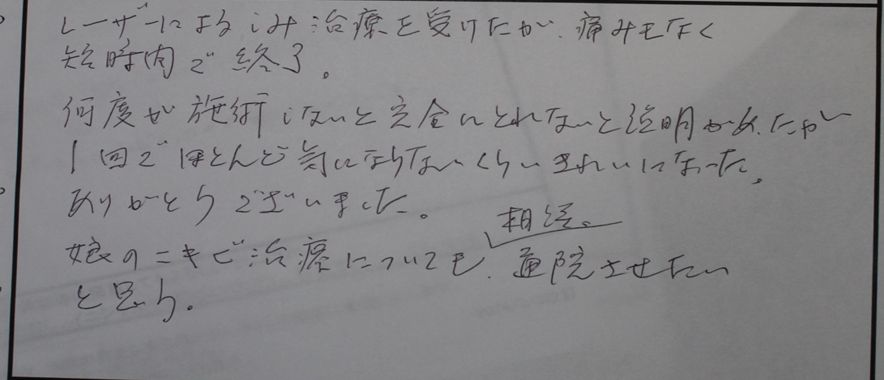 レーザーによるしみ治療を受けたが、痛みもなく
短時間で終了。
何度か施術しないと完全にとれないと説明があったが
1回でほとんど気にならないくらいきれいになった。
ありがとうございました。
相談。
娘のニキビ治療についても、通院させたい
と思う。